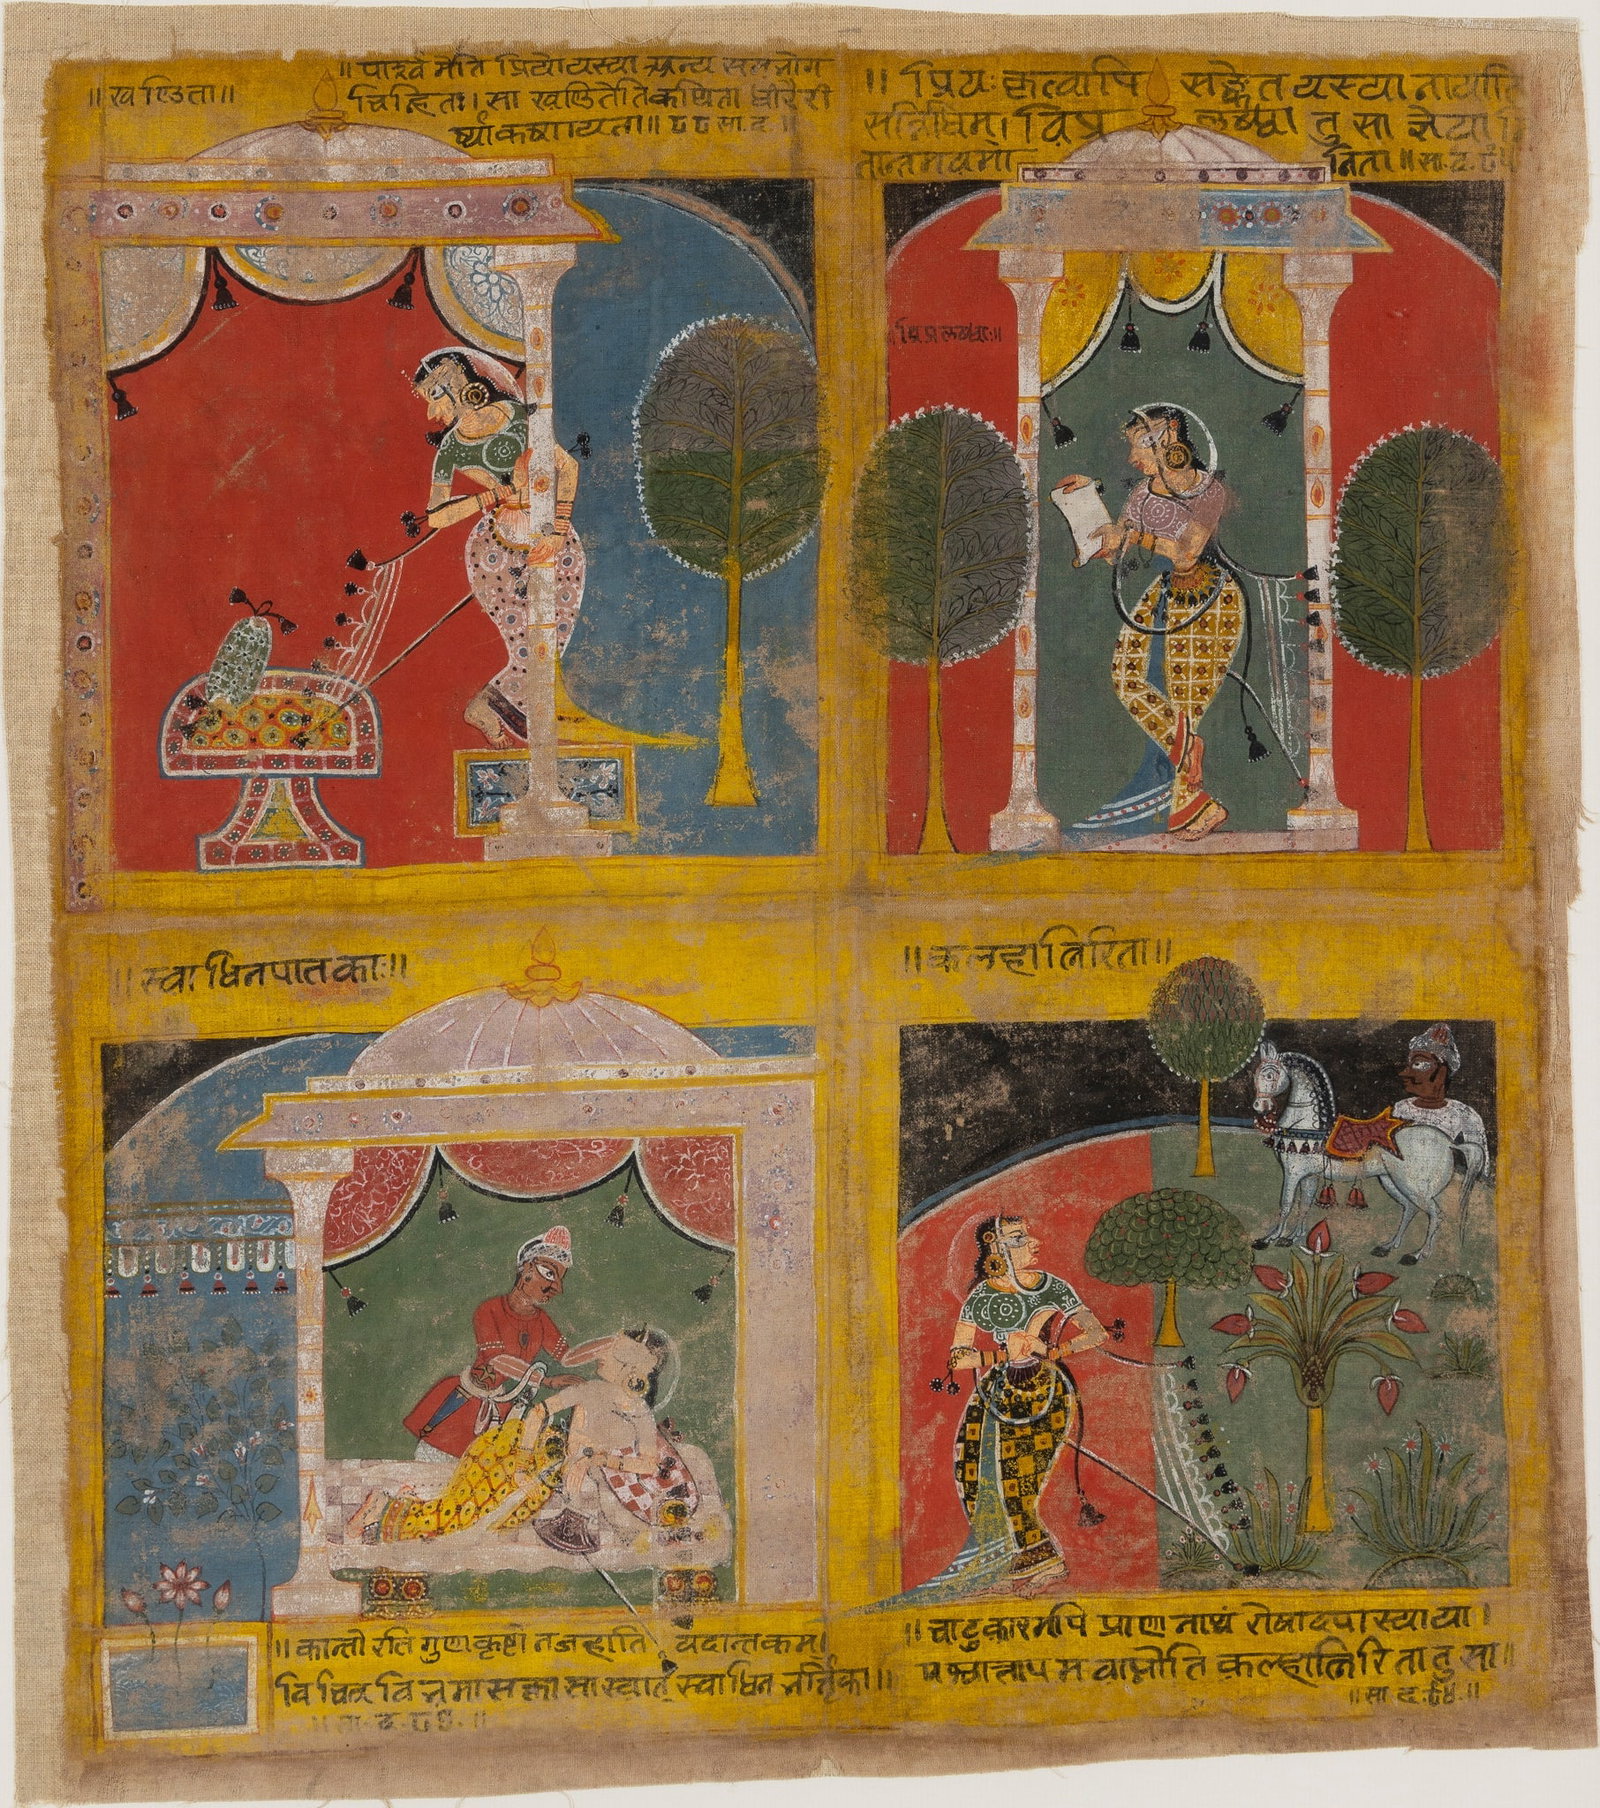 ॥खण्डिता॥
॥पार्श्वमेति प्रियो यस्या अन्य संभोग
चिन्हितः। सा खण्डितेति कथिता धीरैरी
र्ष्या कषायिता॥ सा. द.॥
॥ प्रियः कृत्वापि सङ्केतं यस्या नायाति
सन्निधिम्। विप्रलब्धा तु सा ज्ञेया
नितान्तमवमानिता॥सा. द.
विप्रलब्धाः॥
॥स्वाधिनपतिकाः॥
॥कलहान्तिरिता॥
॥कान्तो रति गुणाकृष्टो न जहाति यदन्तिकम्।
विचित्र विभ्रमासक्ता सा स्यात् स्वाधिन भर्तृका॥
॥सा. द.॥
॥चाटुकारमपि प्राणनाथं रोषादपास्य या।
पश्चात्तापमवाप्नोति कलहान्तिरिता तु सा॥
॥सा. द.॥